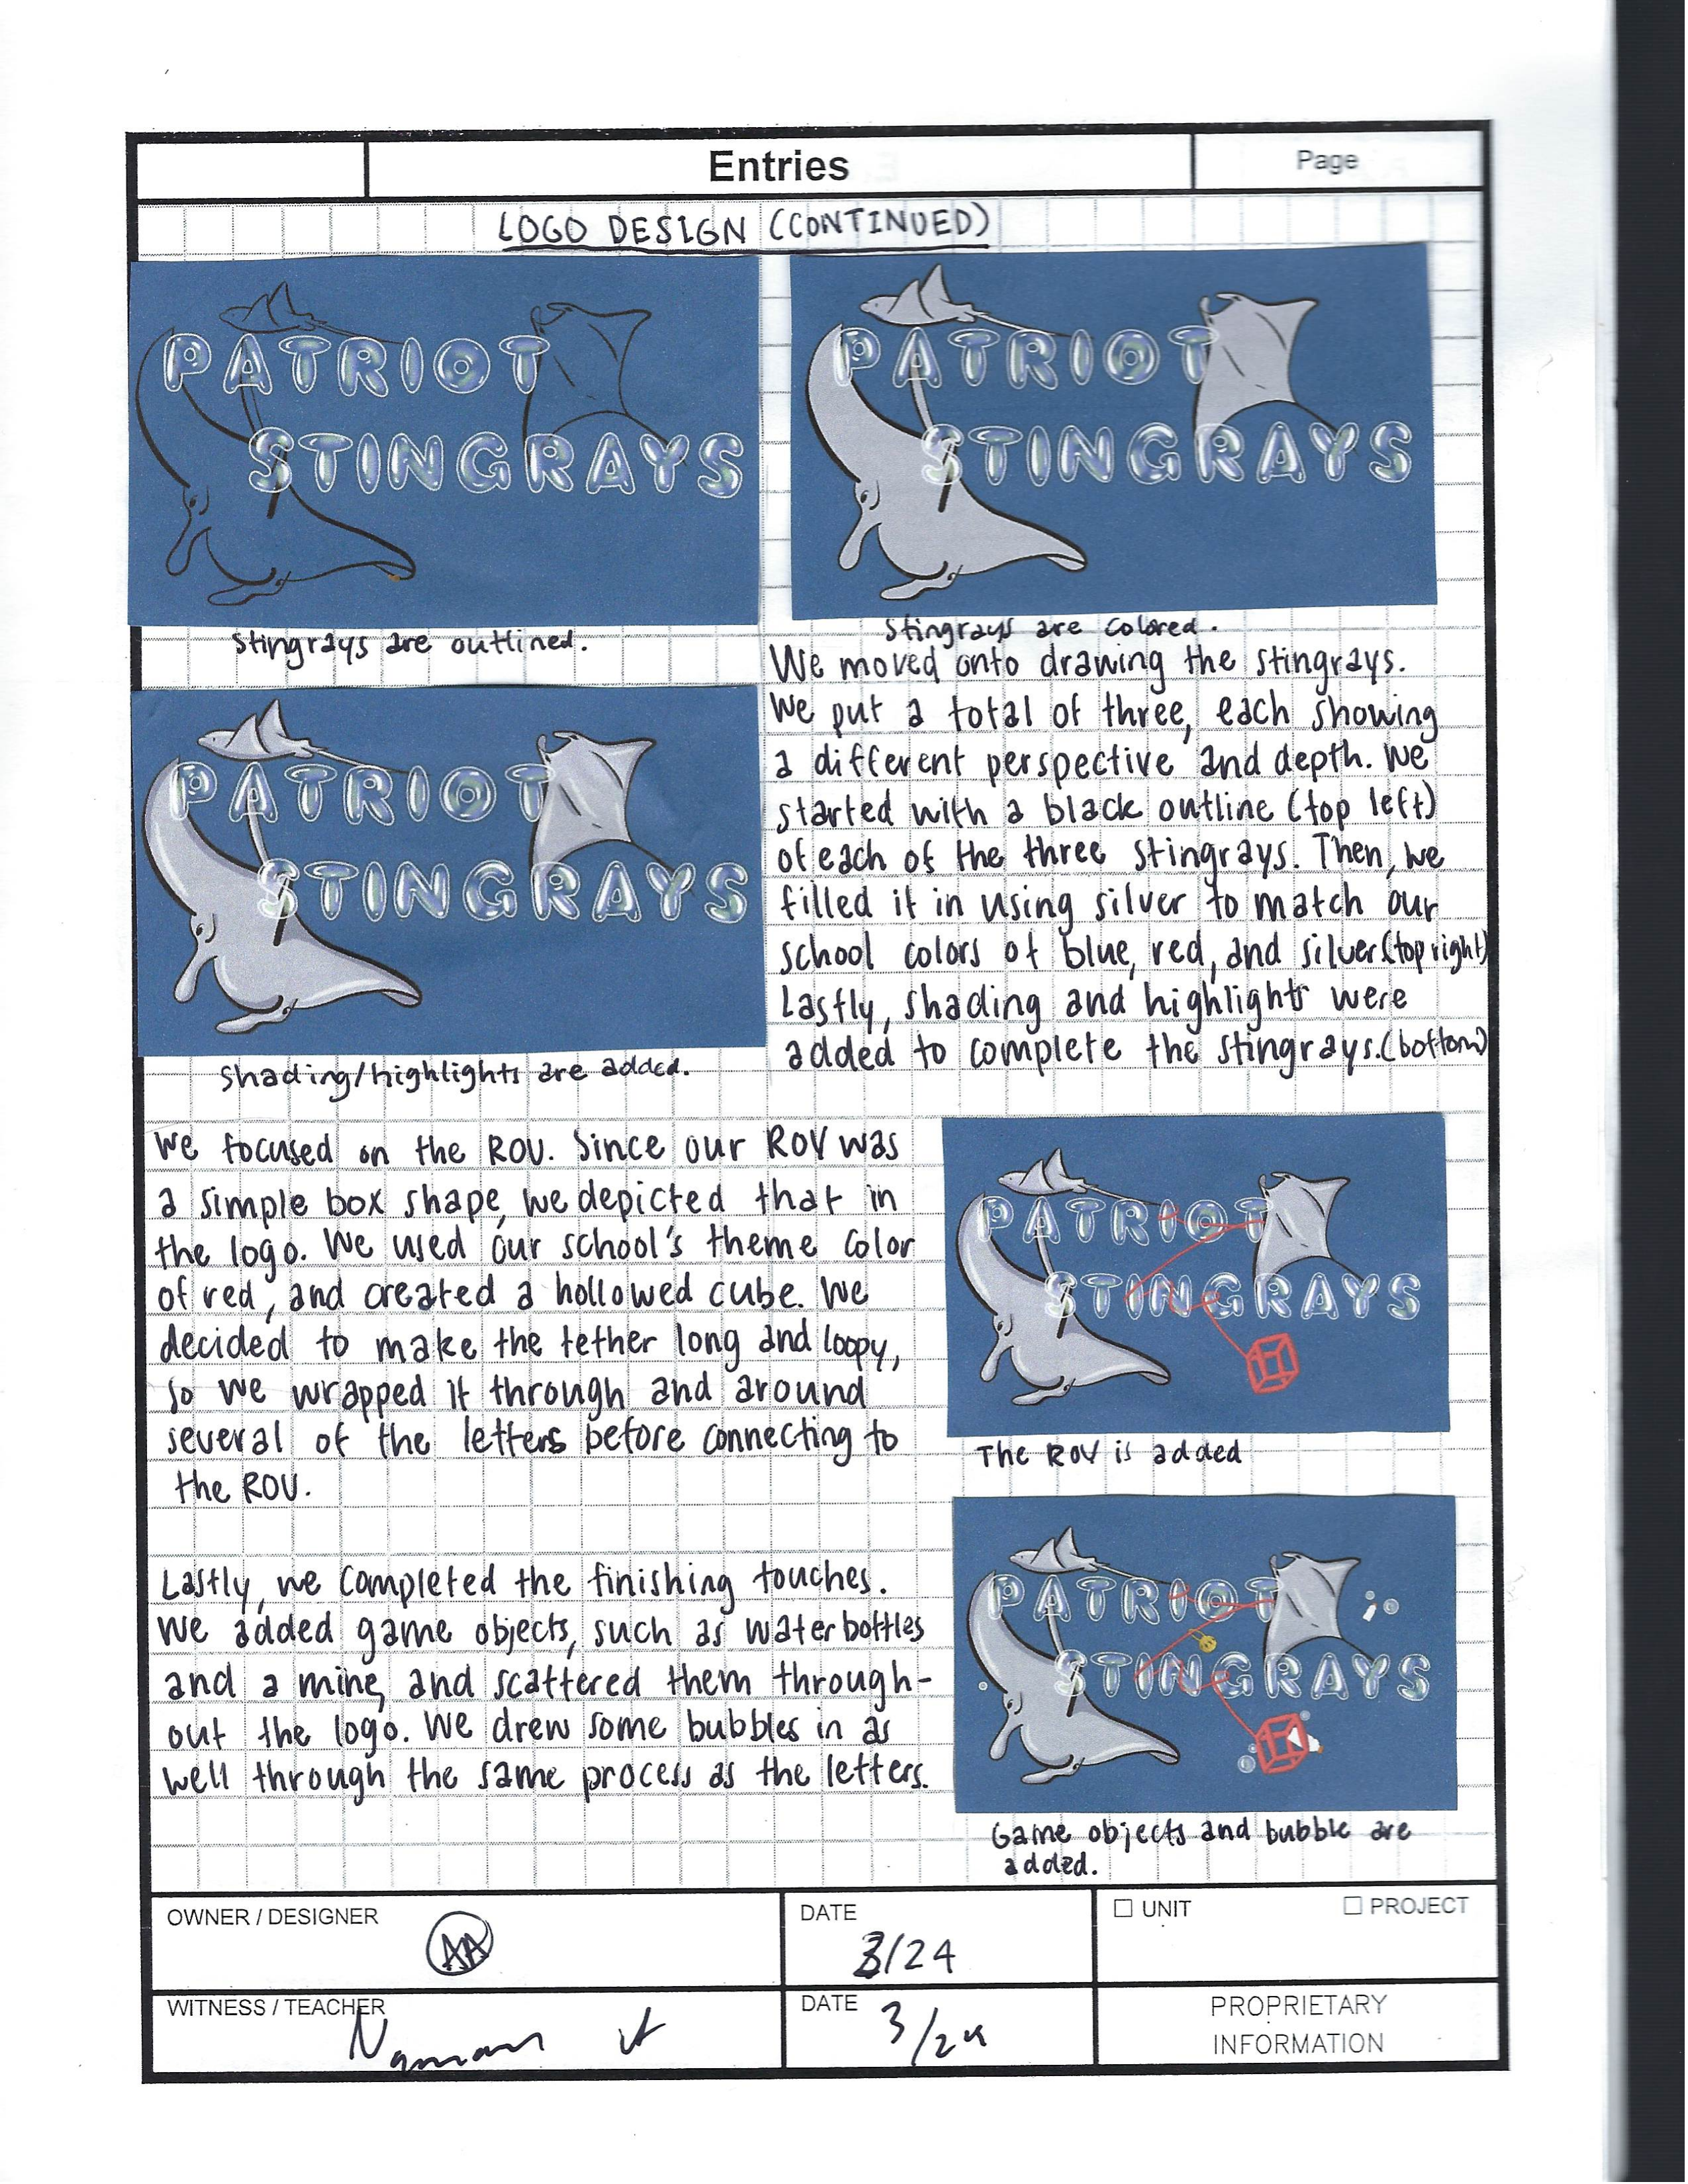 Entries
Page
LOGO DESIGN (CONTINUED)
PATRIOT
STINGRAYS
Stingrays are outlined.
PATRIOT
STINGRAYS
Stingrays are colored.
PATRIOT
STINGRAYS
Shading/highlights are added.
We moved onto drawing the stingrays.
We put a total of three, each showing
a different perspective and depth. We
started with a black outline (top left)
of each of the three stingrays. Then, we
filled it in using silver to match our
school colors of blue, red, and silver.(top right)
Lastly, shading and highlights were
added to complete the stingrays.(bottom)
We focused on the ROV. Since our ROV was
a simple box shape, we depicted that in
the logo. We used our school's theme color
of red, and created a hollowed cube. We
decided to make the tether long and loopy,
so we wrapped it through and around
several of the letters before connecting to
the ROV.
PATRIOT
STINGRAYS
The ROV is added
Lastly, we completed the finishing touches.
We added game objects, such as water bottles
and a mine, and scattered them through-
out the logo. We drew some bubbles in as
well through the same process as the letters.
PATRIOT
STINGRAYS
Game objects and bubble are
added.
OWNER / DESIGNER
AA
DATE
3/24
UNIT
PROJECT
WITNESS / TEACHER
DATE
3/24
PROPRIETARY
INFORMATION